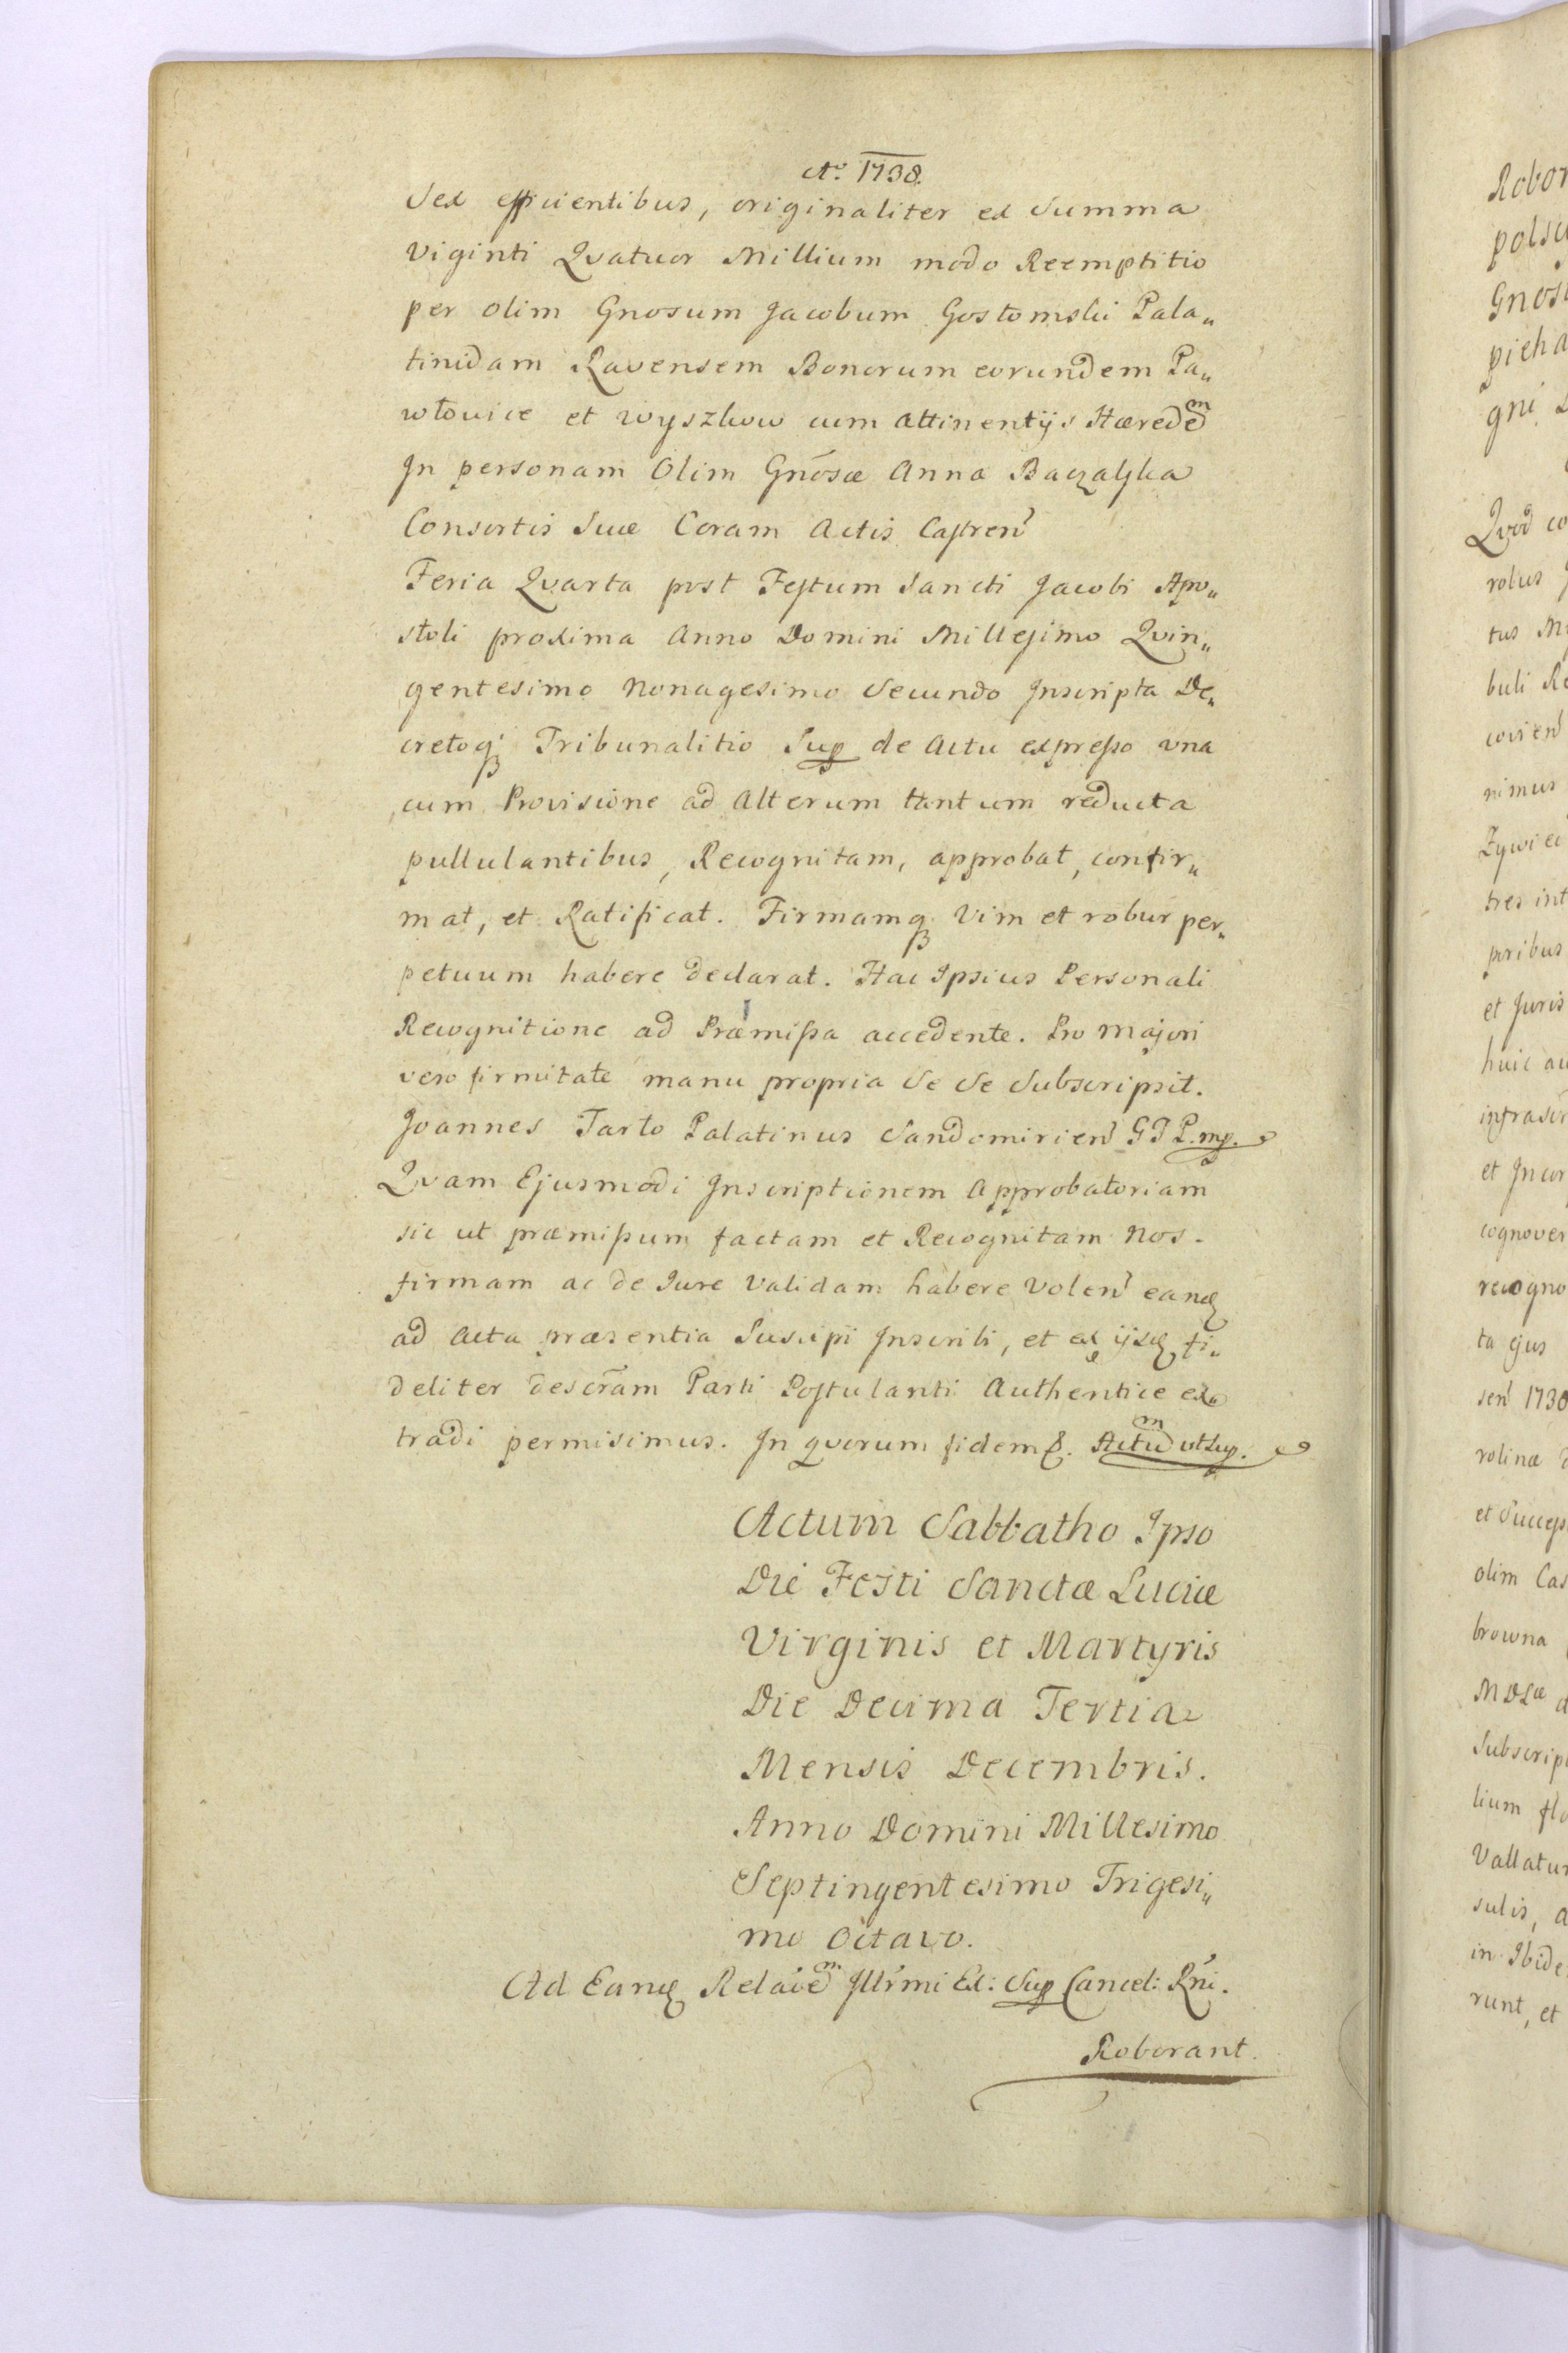 Aº. 1738.
Sex efficientibus, originaliter ex Summa
Viginti Qvatuor Millium modo Reemptitio
per olim Gnosum Jacobum Gostomski Pala„
tinidam Ravensem Bonorum eorundem Pa„
włowice et wyszkow cum attinentijs Hæredem
Jn personam Olim Gn̄osæ Anna Baczalska
Consortis Suæ Coram Actis Castren̄
Feria Qvarta post Festum Sancti Jacobi Apo„
stoli proxima Anno Domini Millesimo Qvin„
gentesimo Nonagesimo Secundo Jnscripta De„
cretoq; Tribunalitio Sup de Actu expresso vna
cum Provisione ad Alterum tantum reducta
pullulantibus, Recognitam, approbat, confir„
mat, et Ratificat. Firmamq; Vim et robur per„
petuum habere declarat. Hac Ipsius Personali
Recognitione ad Præmissa accedente. Pro Majori
vero firmitate manu propria Se Se Subscripsit.
Joannes Tarło Palatinus Sandomirien̄ G J P. mp.
Qvam Ejusmodi Jnscriptionem Approbatoriam
sic ut præmissum factam et Recognitam Nos.
firmam ac de Jure Validam habere Volen̄ eandq
ad Acta præsentia Suscipi Jnscribi, et ex ijsdq fi„
deliter descr̄am Parti Postulanti Authentice ex„
tradi permisimus. Jn qvorum fidem &. Actum vt Sup.
Actum Sabbatho Ipso
Die Festi Sanctæ Luciæ
Virginis et Martyris
Die Decima Tertia
Mensis Decembris.
Anno Domini Millesimo
Septingentesimo Trigesi„
mo Octavo.
Ad Eandq Relāoem Jllr̄mi Ex: Sup Cancel: Rn̄i.
Roborant.
Robor
polsc
Gnos
pieha
gni
Qvod co
rolus
tus
buli Re
covien̄
nimus
Zywiec
tres int
poribus
et Juris
huic au
infrascr
et Jncor
cognover
recogno
ta ejus
sen̄ 1730
rolinæ
et Success
olim Cas
browna
Subscrip
lium
Vallatu
sulis, a
in Ibide
runt, et